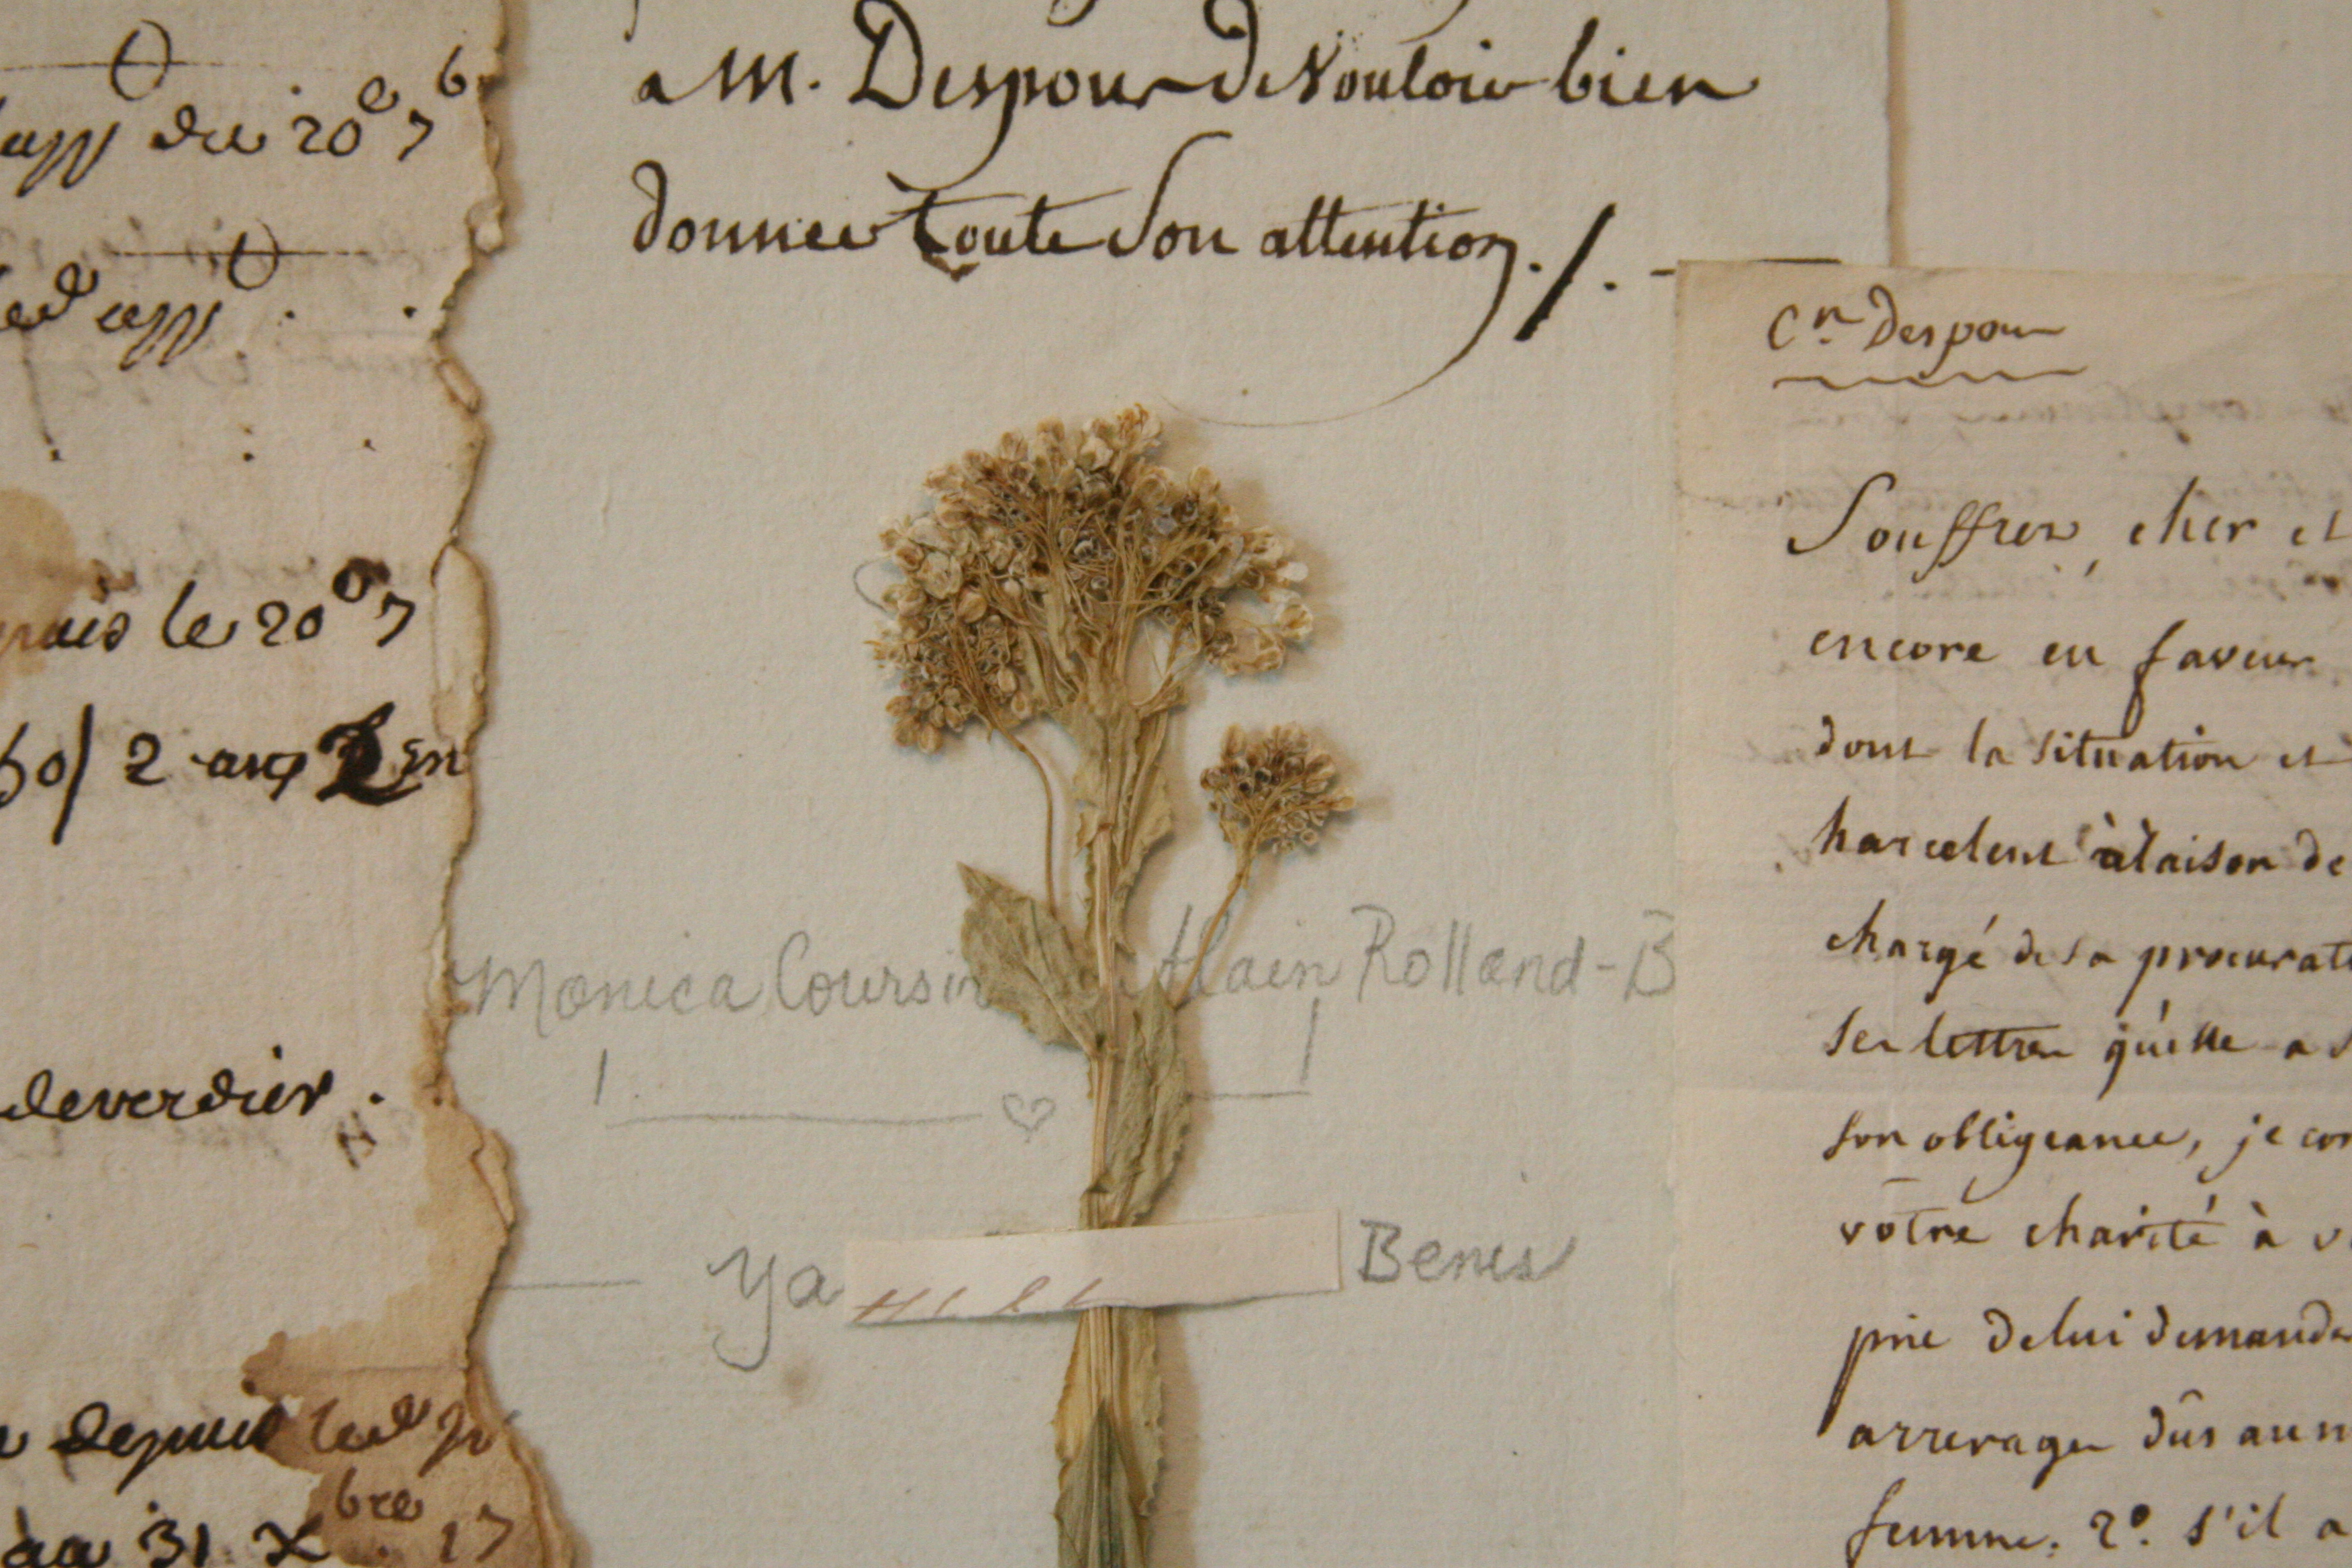 du 20e 7b
depuis le 20e 7
50/ 2 ans
deverdier.
depuis
au 31 Xbre 17
a M. Despour de Vouloir bien
donner toute Son attention./.
Monica Coursin Alain Rolland-B
Ya Benes
Cn. Despour
Souffrez, cher et
encore en faveur
dont la situation et
harcelent à raison de
chargé de sa procurat
ses lettres qu'elle a
son obligeance, je con
vôtre charité à v
prie de lui demander
arrerages dûs au m
femme. 2º. s'il a